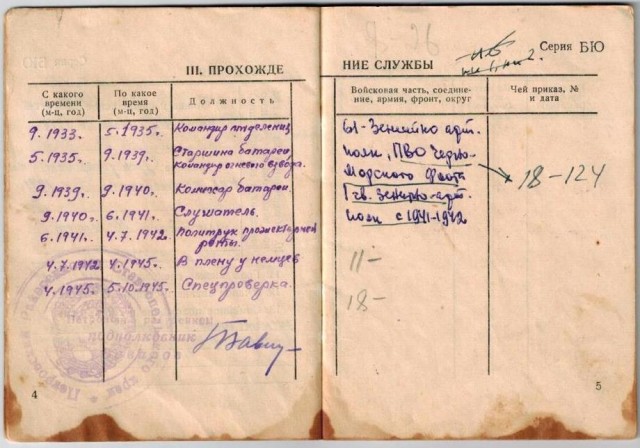 Серия БЮ
III. ПРОХОЖДЕ
НИЕ СЛУЖБЫ
С какого времени (м-ц, год)
По какое время (м-ц, год)
Должность
Войсковая часть, соедине-
ние, армия, фронт, округ
Чей приказ, №
и дата
9.1933. 5.1935г. Командир отделения
5.1935. 9.1939. Старшина батареи
командир огневого взвода.
9.1939. 9.1940. Комиссар батареи.
9.1940г. 6.1941. Слушатель.
6.1941. 4.7.1942. Политрук прожекторной
роты.
4.7.1942 4.1945. В плену у немцев
4.1945. 5.10.1945. Спецпроверка.
61-Зенитно арт.
полк, ПВО Черно-
Морского флота
1 гв. Зенитно-арт.
полк с 1941-1942
18-124
11-
18-
подполковник
4
5